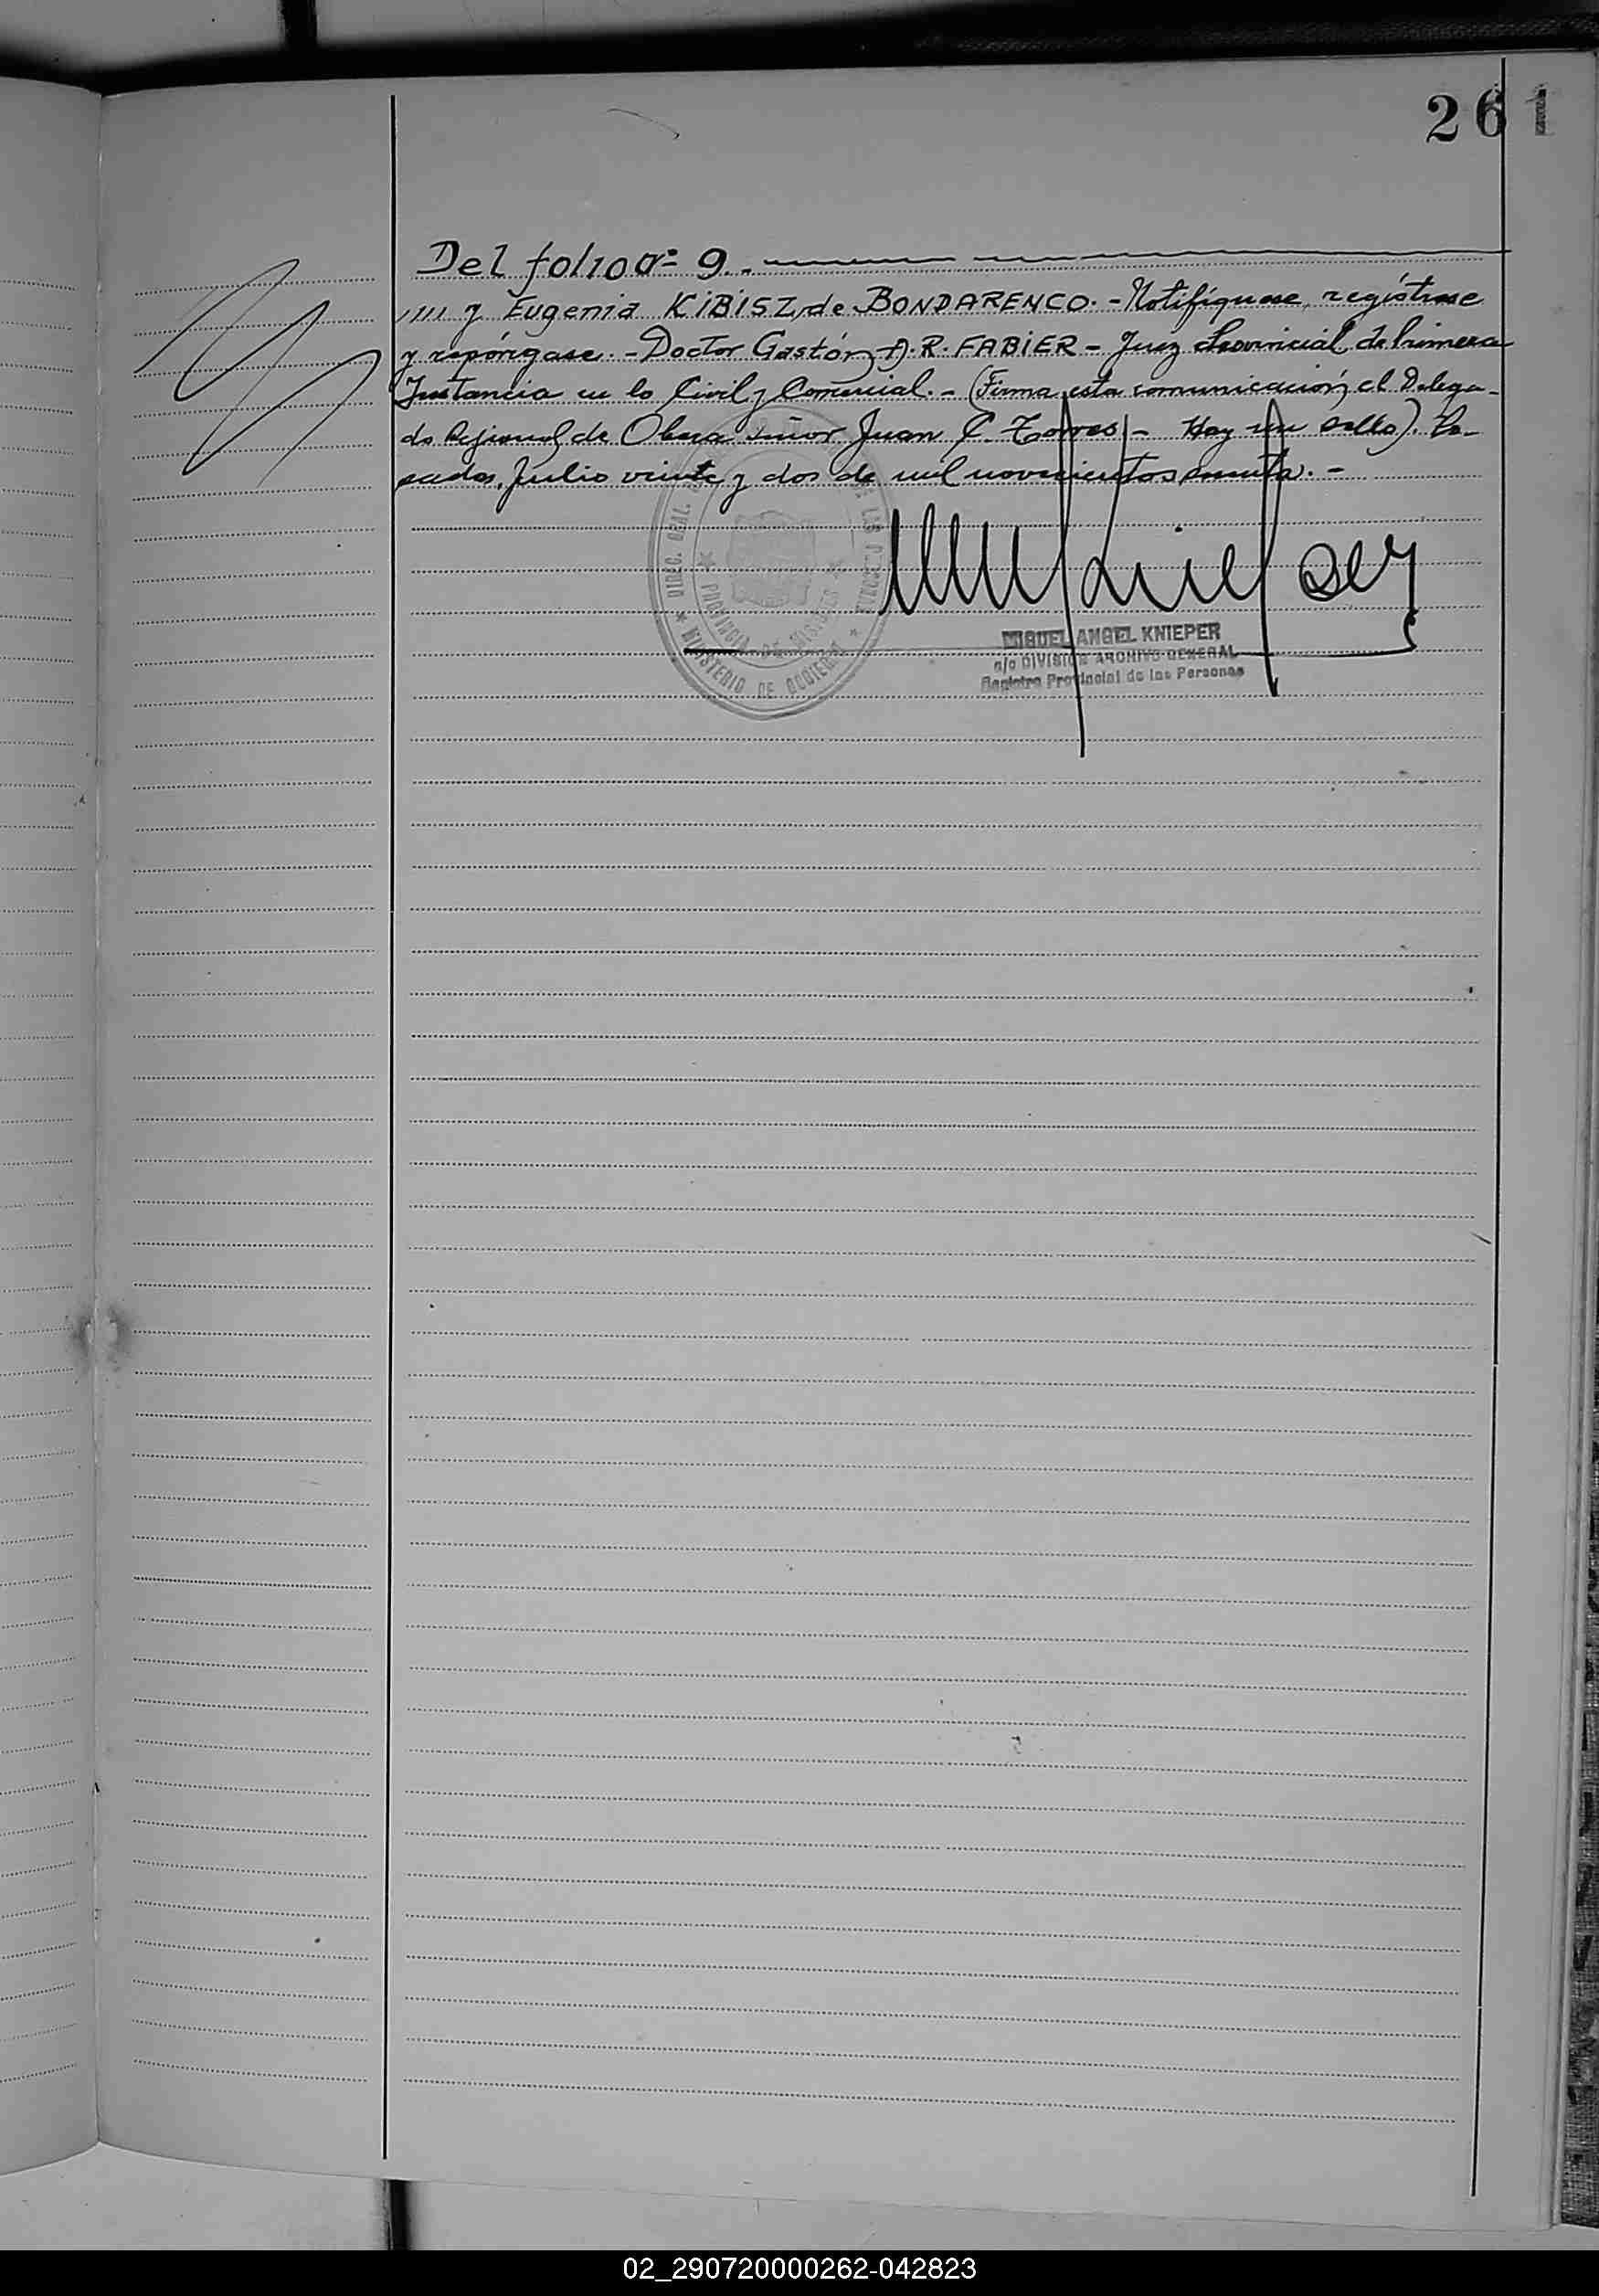 261
Del folio nº 9.
//// y Eugenia KIBISZ de BONDARENCO. - Notifíquese, regístrese
y repóngase. - Doctor Gastón A. R. FABIER - Juez Provincial de Primera
Instancia en lo Civil y Comercial. - (Firma esta comunicación, el Delega-
do Regional de Obera señor Juan C. Torres - Hay un sello). Po-
sadas, Julio veinte y dos de mil novecientos
DIREC. GRAL. DE LAS PERSONAS
* PROVINCIA DE MISIONES *
* MINISTERIO DE GOBIERNO *
MIGUEL ANGEL KNIEPER
a/c DIVISION ARCHIVO GENERAL
Registro Provincial de las Personas
02_290720000262-042823